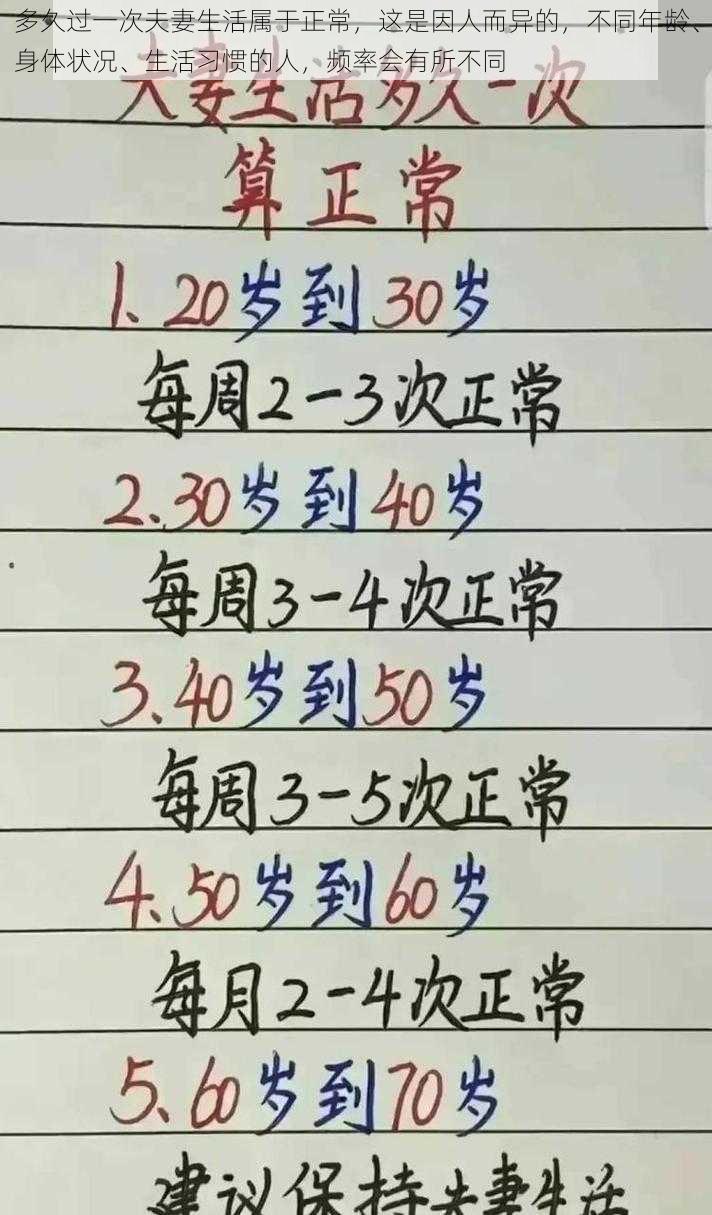 多久过一次夫妻生活属于正常，这是因人而异的，不同年龄、
身体状况、生活习惯的人，频率会有所不同
夫妻生活多久一次
算正常
1、20岁到30岁
每周2-3次正常
2、30岁到40岁
每周3-4次正常
3、40岁到50岁
每周3-5次正常
4、50岁到60岁
每月2-4次正常
5、60岁到70岁
建议保持夫妻生活